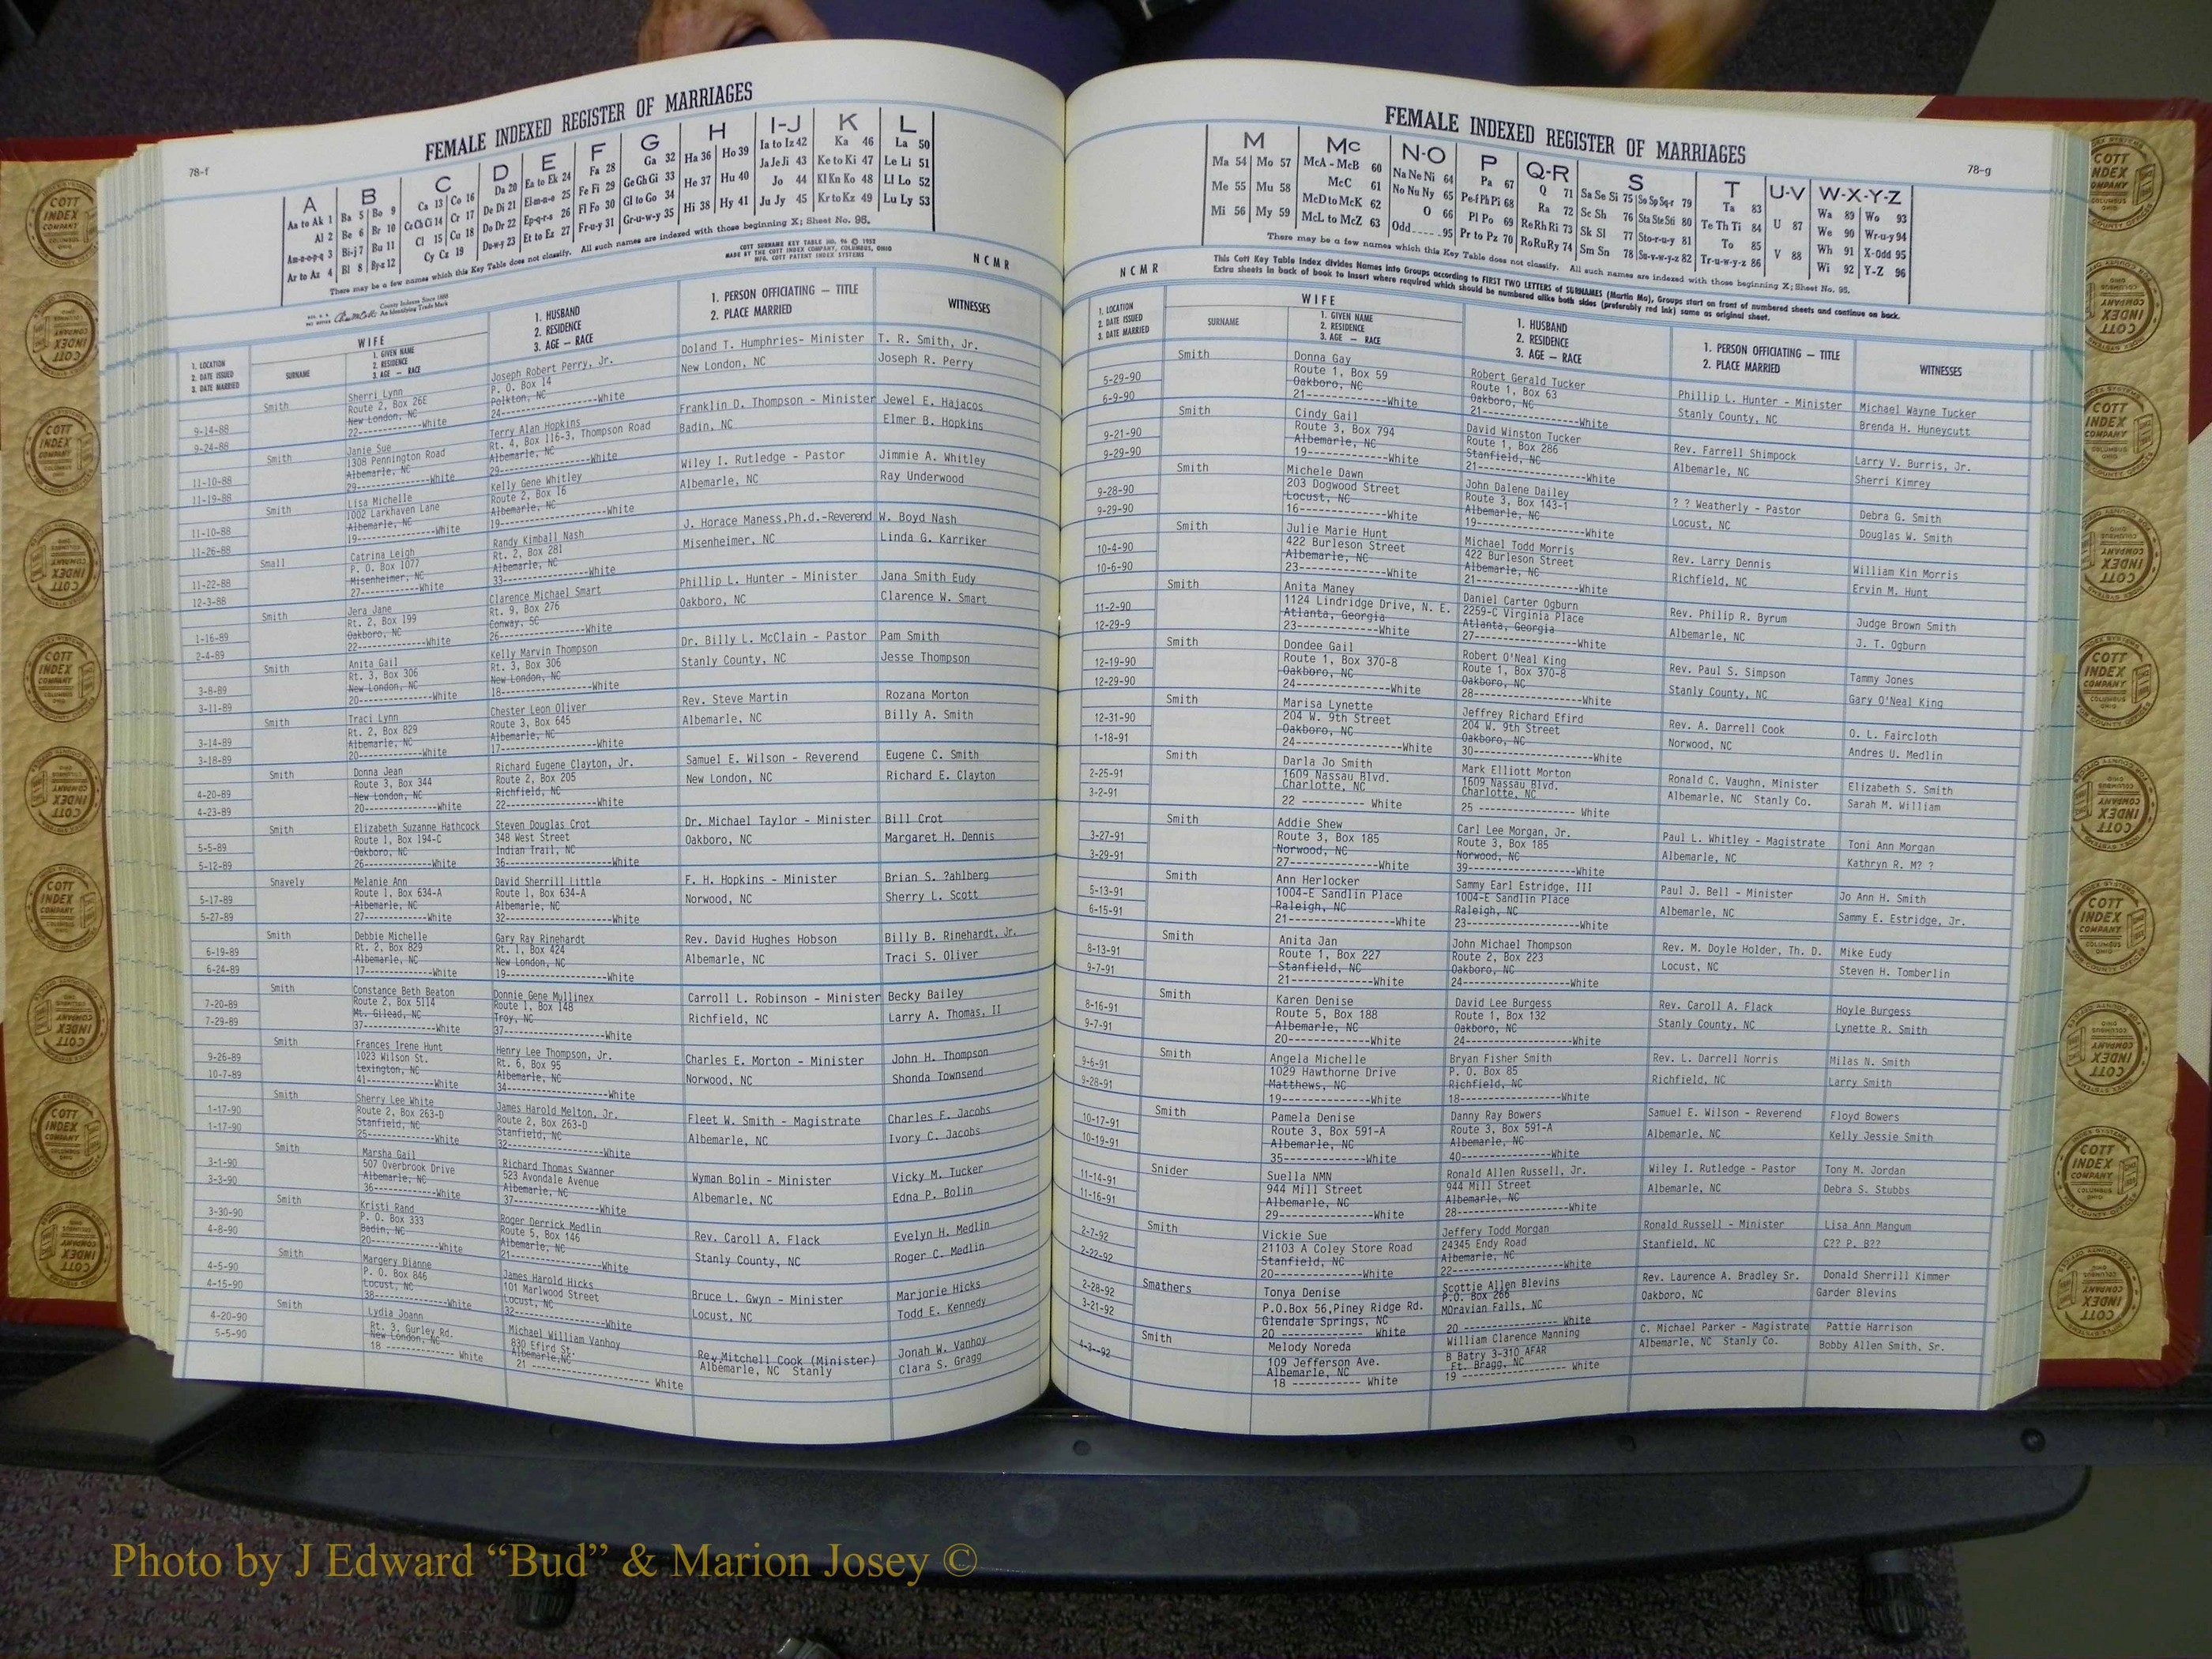 78-f
FEMALE INDEXED REGISTER OF MARRIAGES
A B C D E F G H I-J K L
Aa to Ak 1 Ba 5 Bo 9 Ca 13 Co 16 Da 20 Ea to Ek 24 Fa 28 Ga 32 Ha 36 Ho 39 Ia to Iz 42 Ka 46 La 50
Al 2 Be 6 Br 10 Ce Ch Ci 14 Cr 17 De Di 21 El-m-n-o 25 Fe Fi 29 Ge Gh Gi 33 He 37 Hu 40 Ja Je Ji 43 Ke to Ki 47 Le Li 51
Am-n-o-p-q 3 Bi-j 7 Bu 11 Cl 15 Cu 18 Do Dr 22 Ep-q-r-s 26 Fl Fo 30 Gl to Go 34 Hi 38 Hy 41 Jo 44 Kl Kn Ko 48 Ll Lo 52
Ar to Az 4 Bl 8 By-z 12 Cy Cz 19 Du-w-y 23 Et to Ez 27 Fr-u-y 31 Gr-u-w-y 35 Ju Jy 45 Kr to Kz 49 Lu Ly 53
There may be a few names which this Key Table does not classify. All such names are indexed with those beginning X; Sheet No. 95.
County Indexes Since 1888
An Identifying Trade Mark
COTT SURNAME KEY TABLE NO. 96 © 1952
MADE BY THE COTT INDEX COMPANY, COLUMBUS, OHIO
MFG. COTT PATENT INDEX SYSTEMS
N C M R
1. LOCATION
2. DATE ISSUED
3. DATE MARRIED
WIFE
SURNAME
1. GIVEN NAME
2. RESIDENCE
3. AGE — RACE
1. HUSBAND
2. RESIDENCE
3. AGE — RACE
1. PERSON OFFICIATING — TITLE
2. PLACE MARRIED
WITNESSES
9-14-88 Smith Sherri Lynn Joseph Robert Perry, Jr. Doland T. Humphries- Minister T. R. Smith, Jr.
9-24-88 Route 2, Box 26E P. O. Box 14 New London, NC Joseph R. Perry
New London, NC Polkton, NC
22-------------White 24-------------White
11-10-88 Smith Janie Sue Terry Alan Hopkins Franklin D. Thompson - Minister Jewel E. Hajacos
11-19-88 1308 Pennington Road Rt. 4, Box 116-3, Thompson Road Badin, NC Elmer B. Hopkins
Albemarle, NC Albemarle, NC
29-------------White 29-------------White
11-10-88 Smith Lisa Michelle Kelly Gene Whitley Wiley I. Rutledge - Pastor Jimmie A. Whitley
11-26-88 1002 Larkhaven Lane Route 2, Box 16 Albemarle, NC Ray Underwood
Albemarle, NC Albemarle, NC
19-------------White 19-------------White
11-22-88 Small Catrina Leigh Randy Kimball Nash J. Horace Maness,Ph.d.-Reverend W. Boyd Nash
12-3-88 P. O. Box 1077 Rt. 2, Box 281 Misenheimer, NC Linda G. Karriker
Misenheimer, NC Albemarle, NC
27-------------White 33-------------White
1-16-89 Smith Jera Jane Clarence Michael Smart Phillip L. Hunter - Minister Jana Smith Eudy
2-4-89 Rt. 2, Box 199 Rt. 9, Box 276 Oakboro, NC Clarence W. Smart
Oakboro, NC Conway, SC
22-------------White 26-------------White
3-8-89 Smith Anita Gail Kelly Marvin Thompson Dr. Billy L. McClain - Pastor Pam Smith
3-11-89 Rt. 3, Box 306 Rt. 3, Box 306 Stanly County, NC Jesse Thompson
New London, NC New London, NC
20-------------White 18-------------White
3-14-89 Smith Traci Lynn Chester Leon Oliver Rev. Steve Martin Rozana Morton
3-18-89 Rt. 2, Box 829 Route 3, Box 645 Albemarle, NC Billy A. Smith
Albemarle, NC Albemarle, NC
20-------------White 17-------------White
4-20-89 Smith Donna Jean Richard Eugene Clayton, Jr. Samuel E. Wilson - Reverend Eugene C. Smith
4-23-89 Route 3, Box 344 Route 2, Box 205 New London, NC Richard E. Clayton
New London, NC Richfield, NC
20-------------White 22-------------White
5-5-89 Smith Elizabeth Suzanne Hathcock Steven Douglas Crot Dr. Michael Taylor - Minister Bill Crot
5-12-89 Route 1, Box 194-C 348 West Street Oakboro, NC Margaret H. Dennis
Oakboro, NC Indian Trail, NC
26-------------White 36-------------White
5-17-89 Snavely Melanie Ann David Sherrill Little F. H. Hopkins - Minister Brian S. ?ahlberg
5-27-89 Route 1, Box 634-A Route 1, Box 634-A Norwood, NC Sherry L. Scott
Albemarle, NC Albemarle, NC
27-------------White 32-------------White
6-19-89 Smith Debbie Michelle Gary Ray Rinehardt Rev. David Hughes Hobson Billy B. Rinehardt, Jr.
6-24-89 Rt. 2, Box 829 Rt. 1, Box 424 Albemarle, NC Traci S. Oliver
Albemarle, NC New London, NC
17-------------White 19-------------White
7-20-89 Smith Constance Beth Beaton Donnie Gene Mullinex Carroll L. Robinson - Minister Becky Bailey
7-29-89 Route 2, Box 5114 Route 1, Box 148 Richfield, NC Larry A. Thomas, II
Mt. Gilead, NC Troy, NC
37-------------White 37-------------White
9-26-89 Smith Frances Irene Hunt Henry Lee Thompson, Jr. Charles E. Morton - Minister John H. Thompson
10-7-89 1023 Wilson St. Rt. 6, Box 95 Norwood, NC Shonda Townsend
Lexington, NC Albemarle, NC
41-------------White 34-------------White
1-17-90 Smith Sherry Lee White James Harold Melton, Jr. Fleet W. Smith - Magistrate Charles F. Jacobs
1-17-90 Route 2, Box 263-D Route 2, Box 263-D Albemarle, NC Ivory C. Jacobs
Stanfield, NC Stanfield, NC
25-------------White 32-------------White
3-1-90 Smith Marsha Gail Richard Thomas Swanner Wyman Bolin - Minister Vicky M. Tucker
3-3-90 507 Overbrook Drive 523 Avondale Avenue Albemarle, NC Edna P. Bolin
Albemarle, NC Albemarle, NC
36-------------White 37-------------White
3-30-90 Smith Kristi Rand Roger Derrick Medlin Rev. Caroll A. Flack Evelyn H. Medlin
4-8-90 P. O. Box 333 Route 5, Box 146 Stanly County, NC Roger C. Medlin
Badin, NC Albemarle, NC
20-------------White 21-------------White
4-5-90 Smith Margery Dianne James Harold Hicks Bruce L. Gwyn - Minister Marjorie Hicks
4-15-90 P. O. Box 846 101 Marlwood Street Locust, NC Todd E. Kennedy
Locust, NC Locust, NC
38-------------White 32-------------White
4-20-90 Smith Lydia Joann Michael William Vanhoy Rev Mitchell Cook (Minister) Jonah W. Vanhoy
5-5-90 Rt. 3, Gurley Rd. 830 Efird St. Albemarle, NC Stanly Clara S. Gragg
New London, NC Albemarle,NC
18 ------------- White 21 ------------- White
78-g
FEMALE INDEXED REGISTER OF MARRIAGES
M Mc N-O P Q-R S T U-V W-X-Y-Z
Ma 54 Mo 57 McA - McB 60 Na Ne Ni 64 Pa 67 Q 71 Sa Se Si 75 So Sp Sq-r 79 Ta 83 U 87 Wa 89 Wo 93
Me 55 Mu 58 McC 61 No Nu Ny 65 Pe-f Ph Pi 68 Ra 72 Sc Sh 76 Sta Ste Sti 80 Te Th Ti 84 V 88 We 90 Wr-u-y 94
Mi 56 My 59 McD to McK 62 O 66 Pl Po 69 Re Rh Ri 73 Sk Sl 77 Sto-r-u-y 81 To 85 Wh 91 X-Odd 95
McL to McZ 63 Odd.....95 Pr to Pz 70 Ro Ru Ry 74 Sm Sn 78 Su-v-w-y-z 82 Tr-u-w-y-z 86 Wi 92 Y-Z 96
There may be a few names which this Key Table does not classify. All such names are indexed with those beginning X; Sheet No. 95.
This Cott Key Table Index divides Names into Groups according to FIRST TWO LETTERS of SURNAMES (Martin Ma), Groups start on front of numbered sheets and continue on back.
Extra sheets in back of book to insert where required which should be numbered alike both sides (preferably red ink) same as original sheet.
N C M R
1. LOCATION
2. DATE ISSUED
3. DATE MARRIED
WIFE
SURNAME
1. GIVEN NAME
2. RESIDENCE
3. AGE — RACE
1. HUSBAND
2. RESIDENCE
3. AGE — RACE
1. PERSON OFFICIATING — TITLE
2. PLACE MARRIED
WITNESSES
5-29-90 Smith Donna Gay Robert Gerald Tucker Phillip L. Hunter - Minister Michael Wayne Tucker
6-9-90 Route 1, Box 59 Route 1, Box 63 Stanly County, NC Brenda H. Huneycutt
Oakboro, NC Oakboro, NC
21-------------White 21-------------White
9-21-90 Smith Cindy Gail David Winston Tucker Rev. Farrell Shimpock Larry V. Burris, Jr.
9-29-90 Route 3, Box 794 Route 1, Box 286 Albemarle, NC Sherri Kimrey
Albemarle, NC Stanfield, NC
19-------------White 21-------------White
9-28-90 Smith Michele Dawn John Dalene Dailey ? ? Weatherly - Pastor Debra G. Smith
9-29-90 203 Dogwood Street Route 3, Box 143-1 Locust, NC Douglas W. Smith
Locust, NC Albemarle, NC
16-------------White 19-------------White
10-4-90 Smith Julie Marie Hunt Michael Todd Morris Rev. Larry Dennis William Kin Morris
10-6-90 422 Burleson Street 422 Burleson Street Richfield, NC Ervin M. Hunt
Albemarle, NC Albemarle, NC
23-------------White 21-------------White
11-2-90 Smith Anita Maney Daniel Carter Ogburn Rev. Philip R. Byrum Judge Brown Smith
12-29-9 1124 Lindridge Drive, N. E. 2259-C Virginia Place Albemarle, NC J. T. Ogburn
Atlanta, Georgia Atlanta, Georgia
23-------------White 27-------------White
12-19-90 Smith Dondee Gail Robert O'Neal King Rev. Paul S. Simpson Tammy Jones
12-29-90 Route 1, Box 370-8 Route 1, Box 370-8 Stanly County, NC Gary O'Neal King
Oakboro, NC Oakboro, NC
24-------------White 28-------------White
12-31-90 Smith Marisa Lynette Jeffrey Richard Efird Rev. A. Darrell Cook O. L. Faircloth
1-18-91 204 W. 9th Street 204 W. 9th Street Norwood, NC Andres U. Medlin
Oakboro, NC Oakboro, NC
24-------------White 30-------------White
2-25-91 Smith Darla Jo Smith Mark Elliott Morton Ronald C. Vaughn, Minister Elizabeth S. Smith
3-2-91 1609 Nassau Blvd. 1609 Nassau Blvd. Albemarle, NC Stanly Co. Sarah M. William
Charlotte, NC Charlotte, NC
22 ---------- White 25 ---------- White
3-27-91 Smith Addie Shew Carl Lee Morgan, Jr. Paul L. Whitley - Magistrate Toni Ann Morgan
3-29-91 Route 3, Box 185 Route 3, Box 185 Albemarle, NC Kathryn R. M? ?
Norwood, NC Norwood, NC
27-------------White 39-------------White
5-13-91 Smith Ann Herlocker Sammy Earl Estridge, III Paul J. Bell - Minister Jo Ann H. Smith
6-15-91 1004-E Sandlin Place 1004-E Sandlin Place Albemarle, NC Sammy E. Estridge, Jr.
Raleigh, NC Raleigh, NC
21-------------White 23-------------White
8-13-91 Smith Anita Jan John Michael Thompson Rev. M. Doyle Holder, Th. D. Mike Eudy
9-7-91 Route 1, Box 227 Route 2, Box 223 Locust, NC Steven H. Tomberlin
Stanfield, NC Oakboro, NC
21-------------White 24-------------White
8-16-91 Smith Karen Denise David Lee Burgess Rev. Caroll A. Flack Hoyle Burgess
9-7-91 Route 5, Box 188 Route 1, Box 132 Stanly County, NC Lynette R. Smith
Albemarle, NC Oakboro, NC
20-------------White 24-------------White
9-6-91 Smith Angela Michelle Bryan Fisher Smith Rev. L. Darrell Norris Milas N. Smith
9-28-91 1029 Hawthorne Drive P. O. Box 85 Richfield, NC Larry Smith
Matthews, NC Richfield, NC
19-------------White 18-------------White
10-17-91 Smith Pamela Denise Danny Ray Bowers Samuel E. Wilson - Reverend Floyd Bowers
10-19-91 Route 3, Box 591-A Route 3, Box 591-A Albemarle, NC Kelly Jessie Smith
Albemarle, NC Albemarle, NC
35-------------White 40-------------White
11-14-91 Snider Suella NMN Ronald Allen Russell, Jr. Wiley I. Rutledge - Pastor Tony M. Jordan
11-16-91 944 Mill Street 944 Mill Street Albemarle, NC Debra S. Stubbs
Albemarle, NC Albemarle, NC
29-------------White 28-------------White
2-7-92 Smith Vickie Sue Jeffery Todd Morgan Ronald Russell - Minister Lisa Ann Mangum
2-22-92 21103 A Coley Store Road 24345 Endy Road Stanfield, NC C?? P. B??
Stanfield, NC Albemarle, NC
20-------------White 22-------------White
2-28-92 Smathers Tonya Denise Scottie Allen Blevins Rev. Laurence A. Bradley Sr. Donald Sherrill Kimmer
3-21-92 P.O.Box 56,Piney Ridge Rd. P.O. Box 266 Oakboro, NC Garder Blevins
Glendale Springs, NC MOravian Falls, NC
20 ------------- White 20 ------------- White
4-3--92 Smith Melody Noreda William Clarence Manning C. Michael Parker - Magistrate Pattie Harrison
109 Jefferson Ave. B Batry 3-310 AFAR Albemarle, NC Stanly Co. Bobby Allen Smith, Sr.
Albemarle, NC Ft. Bragg, NC
18 ----------- White 19 ------------- White
COTT INDEX COMPANY COLUMBUS OHIO
Photo by J Edward “Bud” & Marion Josey ©